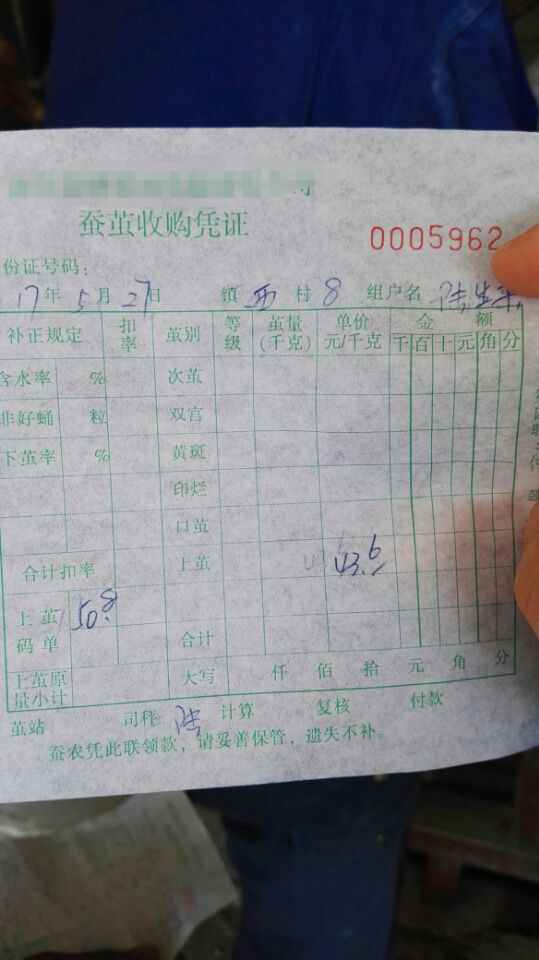 蚕茧收购凭证
0005962
份证号码：
17年5月27日 镇西村8组户名
补正规定 扣率 茧别 等级 茧量(千克) 单价元/千克 金额 千百十元角分
含水率 % 次茧
非好蛹 粒 双宫
下茧率 % 黄斑
印烂
口茧
合计扣率 上茧 43.6
上茧码单 50.8 合计
上茧原量小计 大写 仟 佰 拾 元 角 分
茧站 司秤 陆 计算 复核 付款
蚕农凭此联领款，请妥善保管，遗失不补。